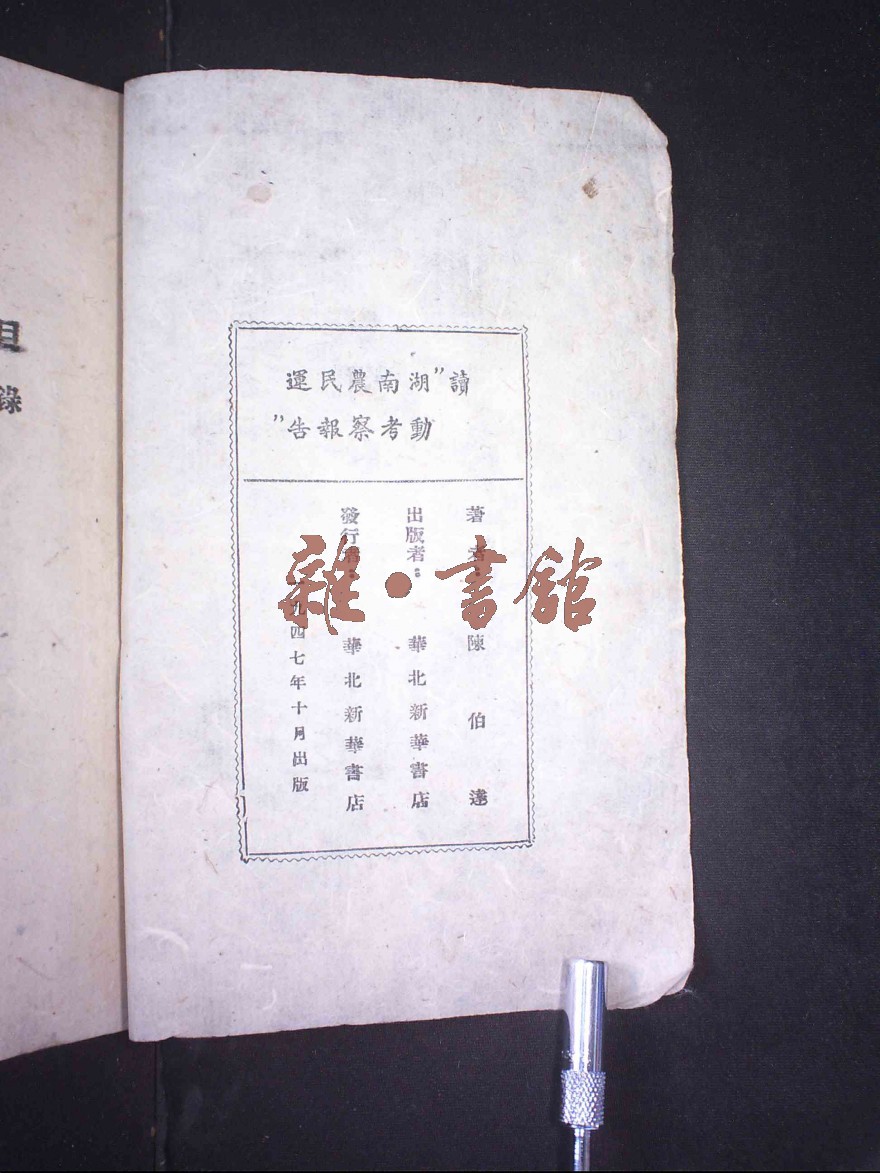 讀"湖南農民運
動考察報告"
著者：陳伯達
出版者：華北新華書店
發行者：華北新華書店
一九四七年十月出版
雜·書館
目錄